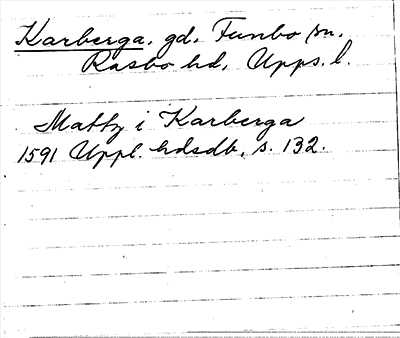 Karberga, gd. Funbo sn.
Rasbo hd, Upps. l.
Matz i Karberga
1591 Uppl. hdsdb, s. 132.